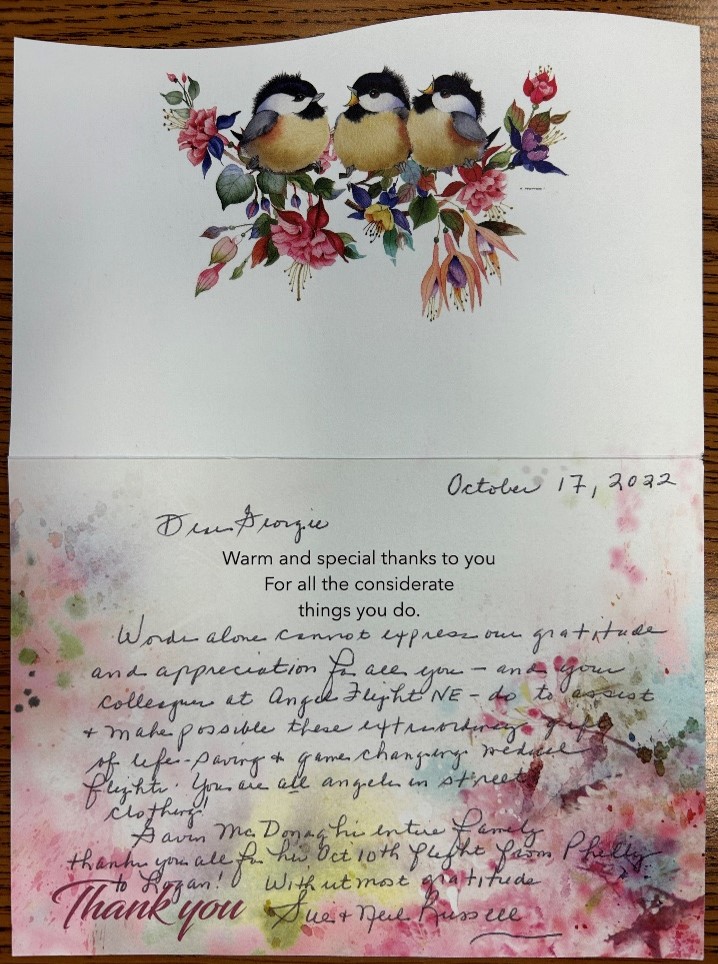 October 17, 2022
Dear Georgie
Warm and special thanks to you
For all the considerate
things you do.
Words alone cannot express our gratitude
and appreciation for all you - and your
colleagues at Angel Flight NE - do to assist
& make possible these extraordinary gifts
of life-saving & game changing medical
flights. You are all angels in street
clothing!
Gavin McDonagh's entire family
thanks you all for his Oct 10th flight from Philly
to Logan! With utmost gratitude
Thank you Sue & Neil Russell